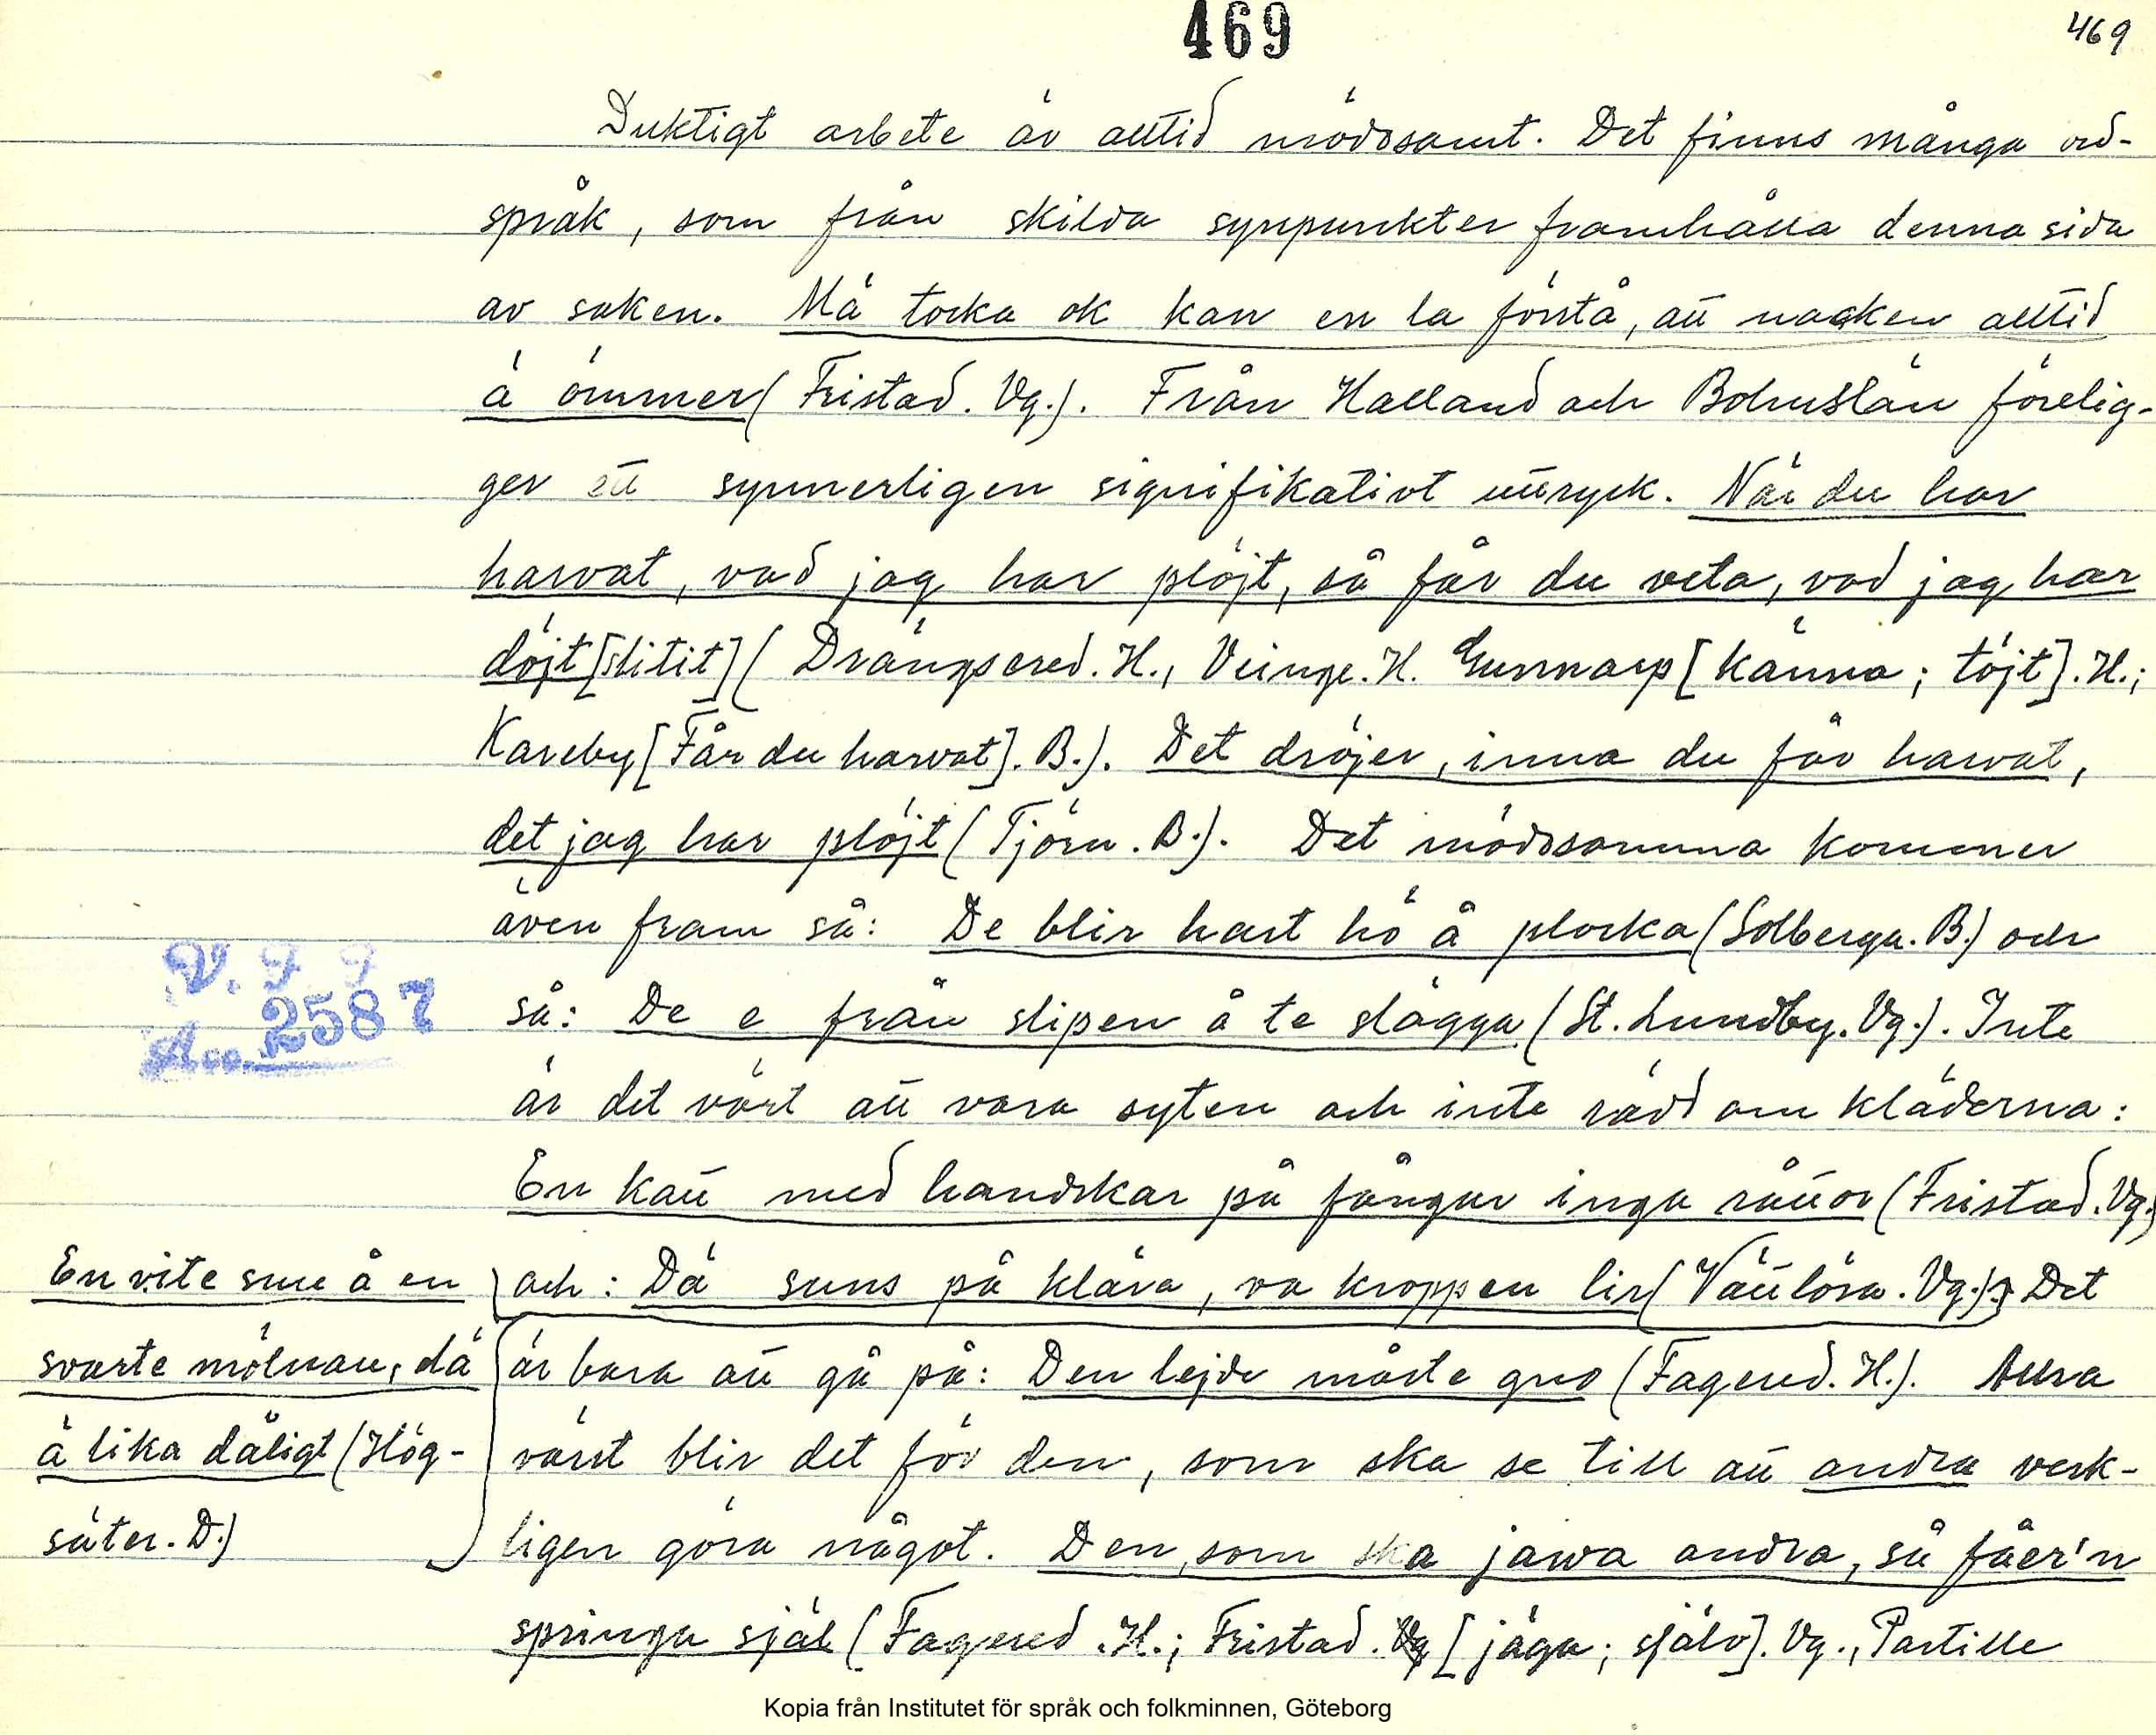 469
469
Duktigt arbete är alltid mödosamt. Det finns många ord-
språk, som från skilda synpunkter framhålla denna sida
av saken. Mä tocka ok kan en la förstå, att nacken alltid
ä ömmer (Fristad. Vg.). Från Halland och Bohuslän förelig-
ger ett synnerligen signifikativt uttryck. När du har
harvat, vad jag har plöjt, så får du veta, vad jag har
döjt [slitit] (Drängsered. H., Veinge. H. Gunnarp [känna; töjt]. H.;
Kareby [Får du harvat]. B.). Det dröjer, inna du får harvat,
det jag har plöjt (Tjörn. B.). Det mödosamma kommer
även fram så: De blir hart hö å plocka (Solberga. B.) och
så: De e från slipen å te slägga (St. Lundby. Vg.). Inte
är det värt att vara syten och inte rädd om kläderna:
En katt med handskar på fångar inga råttor (Fristad. Vg.)
och: Dä suns på klära, va kroppen lir (Vättlösa. Vg.). Det
är bara att gå på: Den lejde måste gno (Fagered. H.). Allra
värst blir det för den, som ska se till att andra verk-
ligen göra något. Den, som ska jawa andra, så fåer'n
springa själ (Fagered. H.; Fristad. [jäga; själv]. Vg., Partille
V. F. F.
Acc. 2587
En vite sme å en
svarte mölnare, dä
ä lika dåligt (Hög-
säter. D.)
Kopia från Institutet för språk och folkminnen, Göteborg